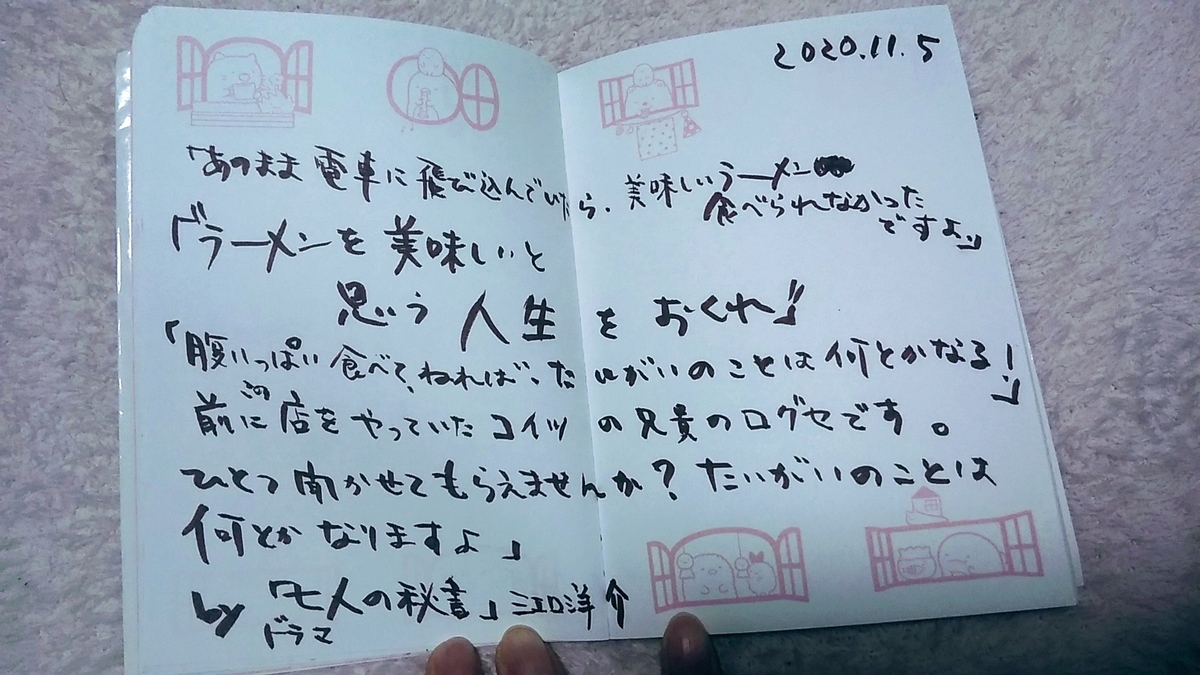 2020.11.5
「あのまま電車に飛び込んでいたら、美味しいラーメン
食べられなかった
ですよ」
「ラーメンを美味しいと
思う人生をおくれ!」
「腹いっぱい食べて、ねれば、たいがいのことは何とかなる!」
前にこの店をやっていたコイツの兄貴の口グセです。
ひとつ聞かせてもらえませんか?たいがいのことは
何とかなりますよ」
by 「七人の秘書」江口洋介
ドラマ